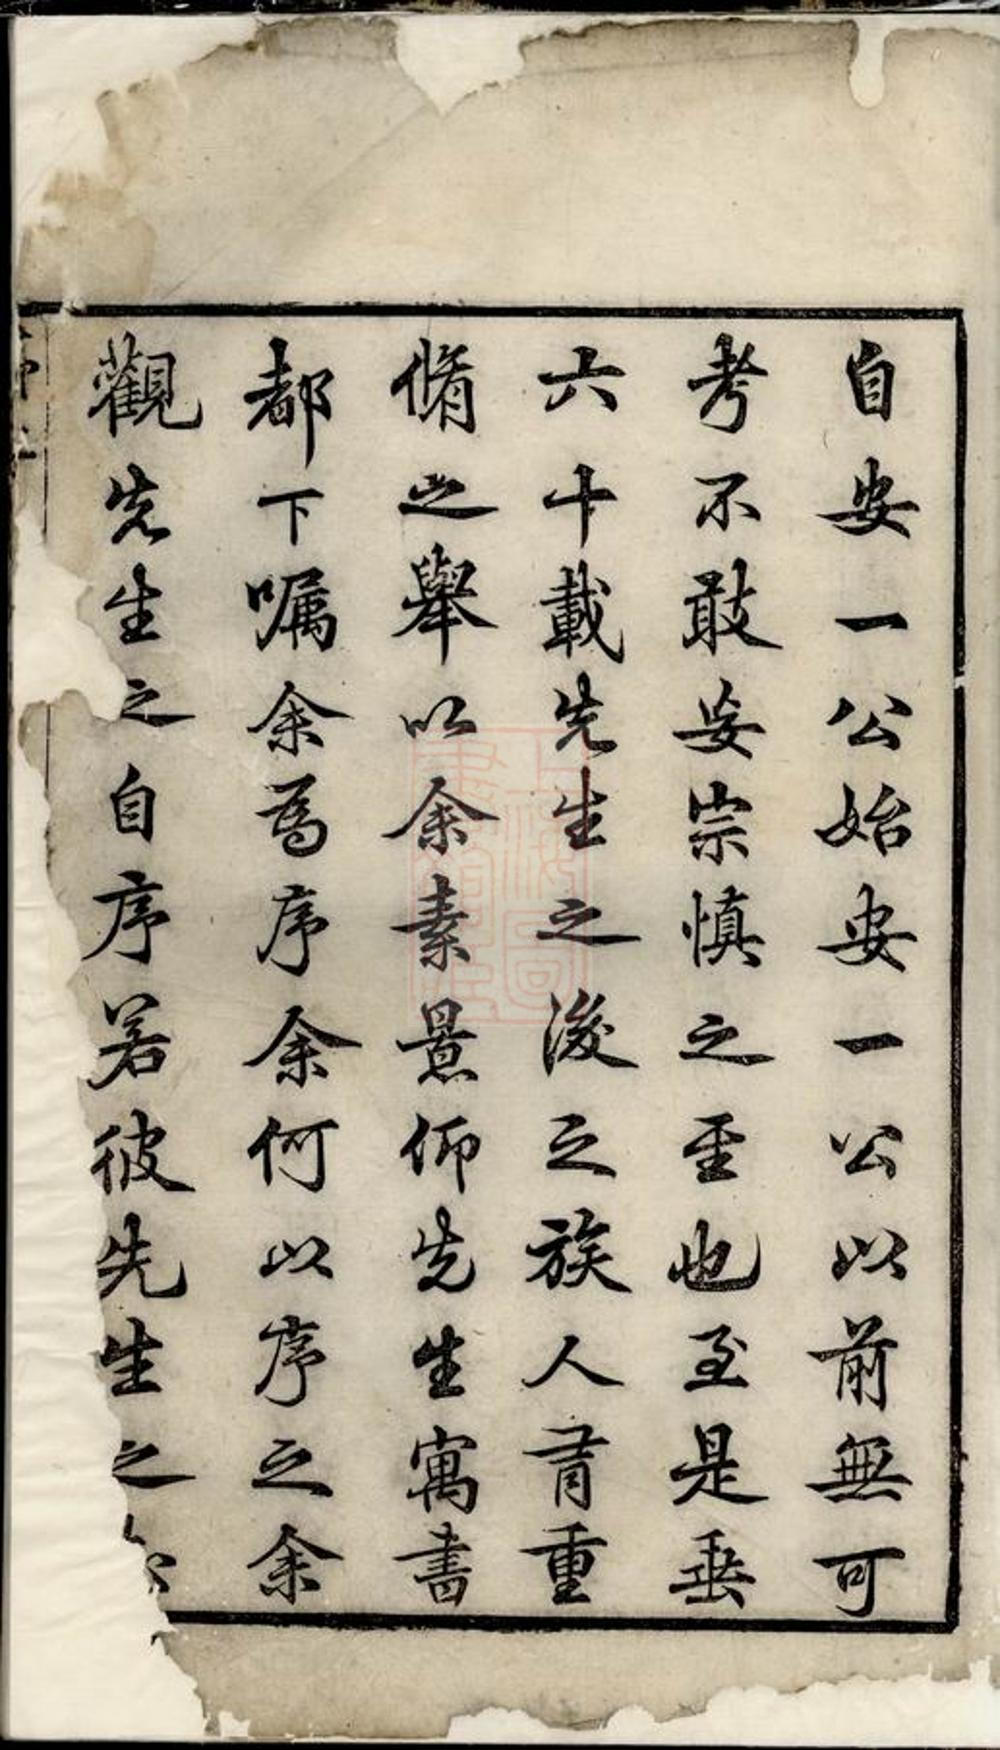 自安一公始安一公以前無可
考不敢妄宗慎之至也至是垂
六十載先生之後之族人有重
脩之舉以余素景仰先生寓書
都下嘱余為序余何以序之余
觀先生之自序若彼先生之